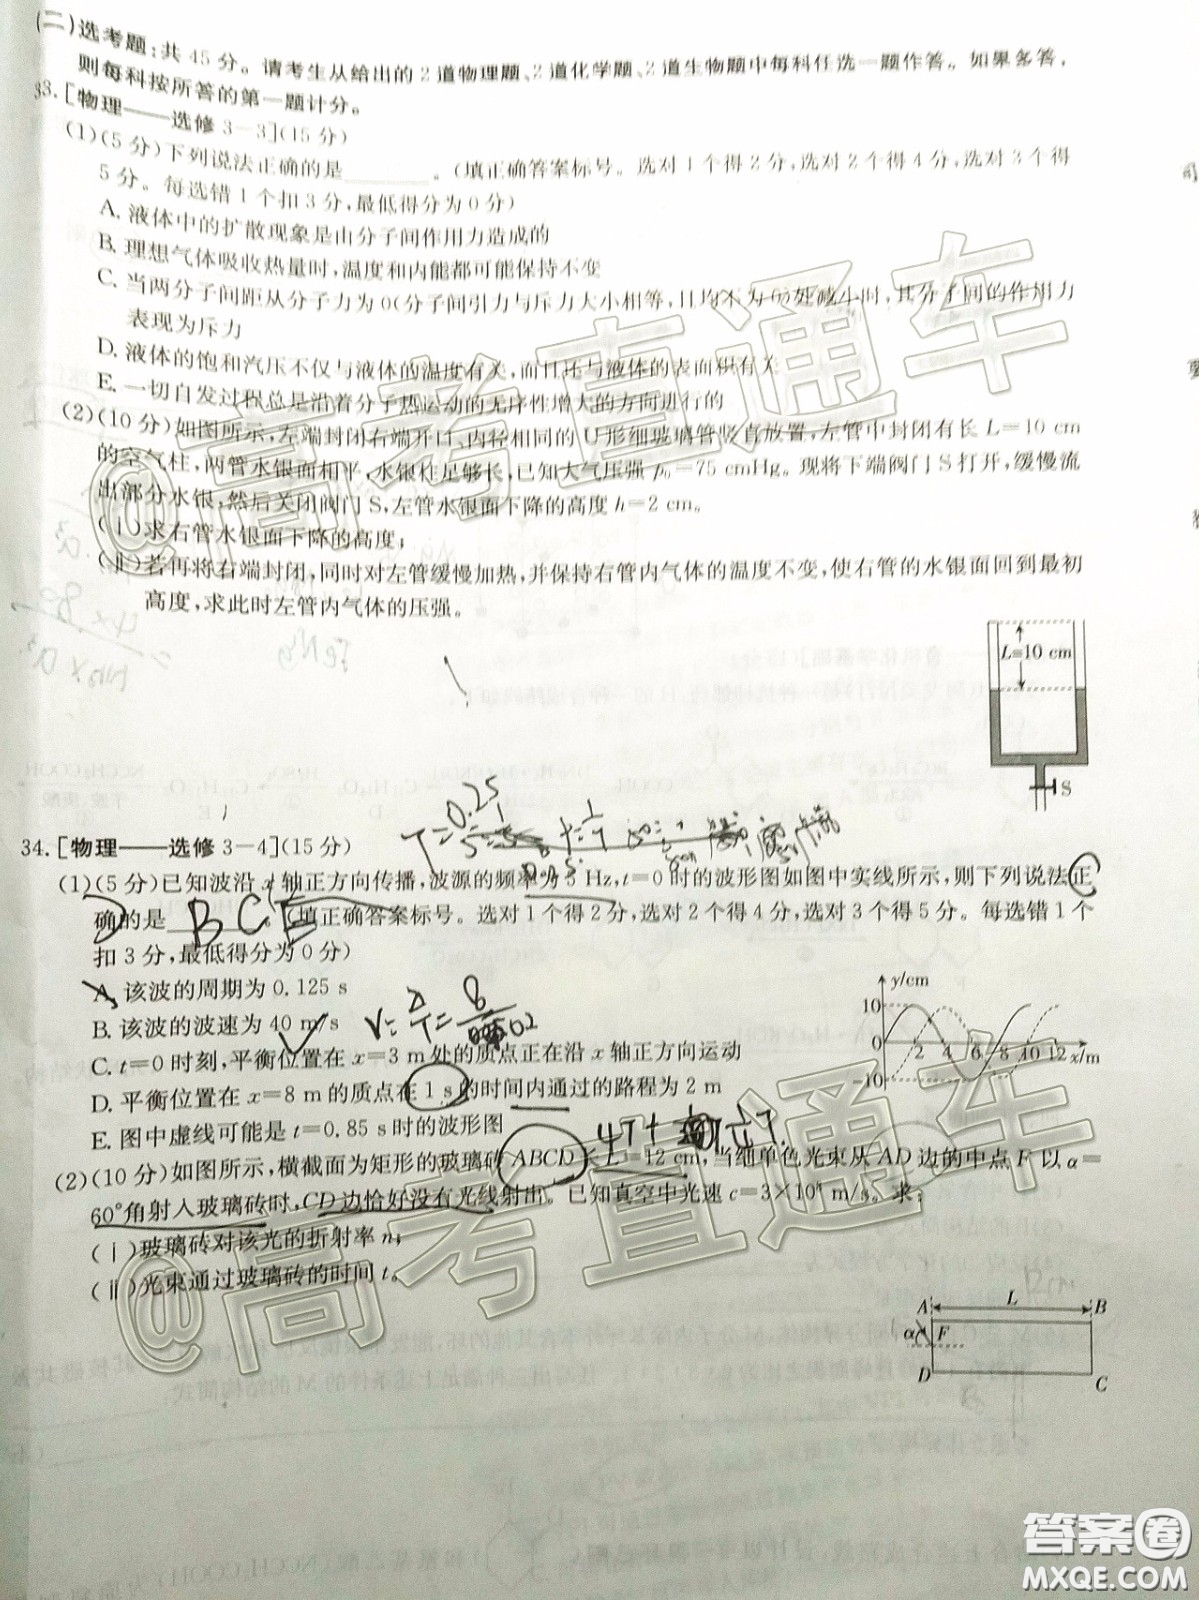 (二)选考题:共45分。请考生从给出的2道物理题、2道化学题、2道生物题中每科任选一题作答。如果多答,
则每科按所答的第一题计分。
33.[物理——选修3-3](15分)
(1)(5分)下列说法正确的是______。(填正确答案标号。选对1个得2分,选对2个得4分,选对3个得
5分。每选错1个扣3分,最低得分为0分)
A.液体中的扩散现象是由分子间作用力造成的
B.理想气体吸收热量时,温度和内能都可能保持不变
C.当两分子间距从分子力为0(分子间引力与斥力大小相等,且均不为0)处减小时,其分子间的作用力
表现为斥力
D.液体的饱和汽压不仅与液体的温度有关,而且还与液体的表面积有关
E.一切自发过程总是沿着分子热运动的无序性增大的方向进行的
(2)(10分)如图所示,左端封闭右端开口、内径相同的U形细玻璃管竖直放置,左管中封闭有长L=10 cm
的空气柱,两管水银面相平,水银柱足够长,已知大气压强p₀=75 cmHg。现将下端阀门S打开,缓慢流
出部分水银,然后关闭阀门S,左管水银面下降的高度h=2 cm。
(ⅰ)求右管水银面下降的高度;
(ⅱ)若再将右端封闭,同时对左管缓慢加热,并保持右管内气体的温度不变,使右管的水银面回到最初
高度,求此时左管内气体的压强。
L=10 cm
S
34.[物理——选修3-4](15分)
(1)(5分)已知波沿x轴正方向传播,波源的频率为5 Hz,t=0时的波形图如图中实线所示,则下列说法正
确的是 BCE 。(填正确答案标号。选对1个得2分,选对2个得4分,选对3个得5分。每选错1个
扣3分,最低得分为0分)
A.该波的周期为0.125 s
B.该波的波速为40 m/s
C.t=0时刻,平衡位置在x=3 m处的质点正在沿x轴正方向运动
D.平衡位置在x=8 m的质点在1 s的时间内通过的路程为2 m
E.图中虚线可能是t=0.85 s时的波形图
y/cm
10
0
-10
2 4 6 8 10 12 x/m
(2)(10分)如图所示,横截面为矩形的玻璃砖ABCD长L=12 cm,当细单色光束从AD边的中点F以α=
60°角射入玻璃砖时,CD边恰好没有光线射出。已知真空中光速c=3×10⁸ m/s。求:
(ⅰ)玻璃砖对该光的折射率n;
(ⅱ)光束通过玻璃砖的时间t。
A L B
α F
D C
@高考直通车
@高考直通车
答案圈
MXQE.COM